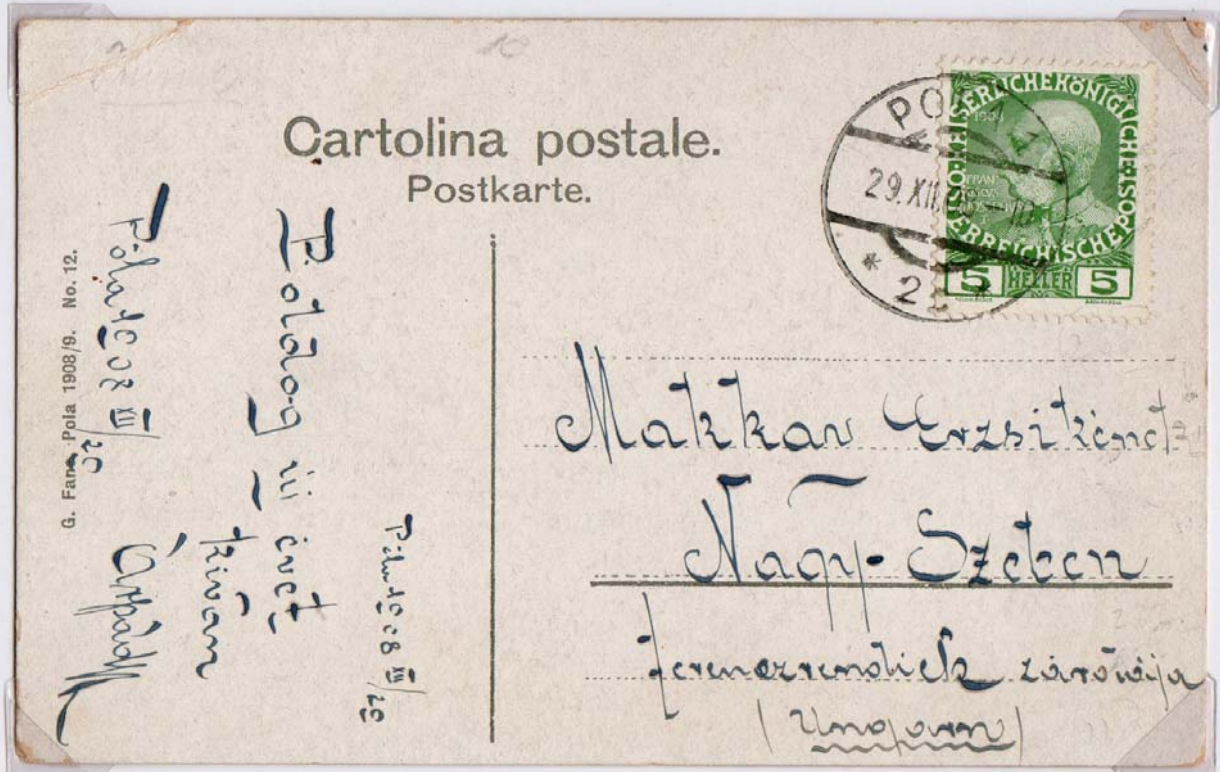 Cartolina postale.
Postkarte.
G. Fano, Pola 1908/9. No. 12.
Póla 1908 XII/29
Boldog új évet
kíván
Árpád
Póla 1908 XII/29
KAISERLICHE KÖNIGLICHE
ÖSTERREICHISCHE POST
1908
5 HELLER 5
29.XII.
* 2
Makkav Erzsikének
Nagy-Szeben
ferenczrendiek zárdája
(Ungarn)